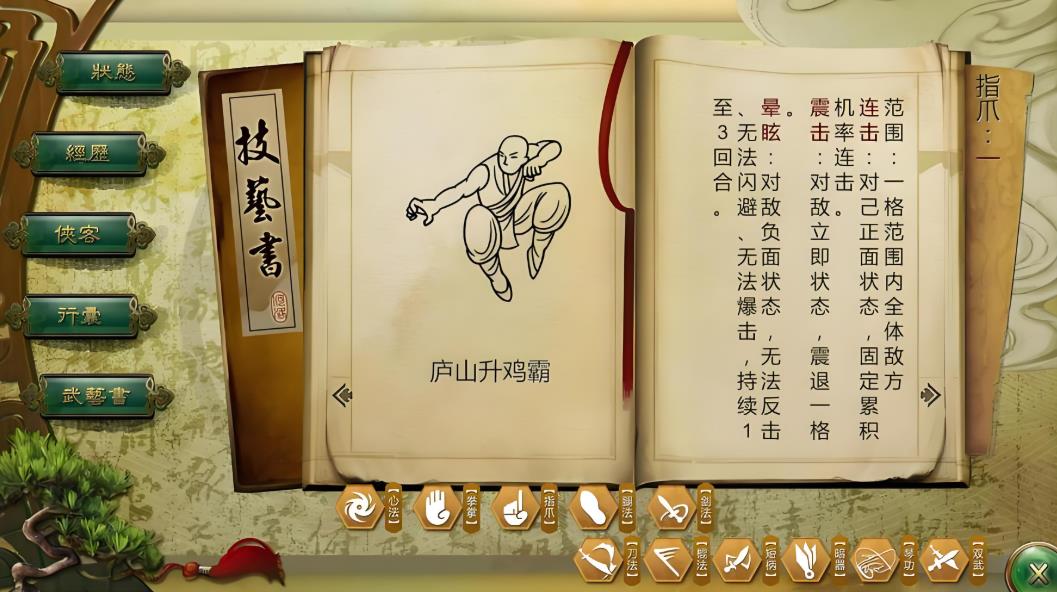 狀態
經歷
俠客
行囊
武藝書
技藝書
庐山升鸡霸
指爪：一
范围：一格范围内全体敌方
连击：对己正面状态，固定累积
机率连击。
震击：对敌立即状态，震退一格
。
晕眩：对敌负面状态，无法反击
、无法闪避、无法爆击，持续1
至3回合。
【心法】
【拳掌】
【指爪】
【腿法】
【剑法】
【刀法】
【棍法】
【短柄】
【暗器】
【琴功】
【双武】